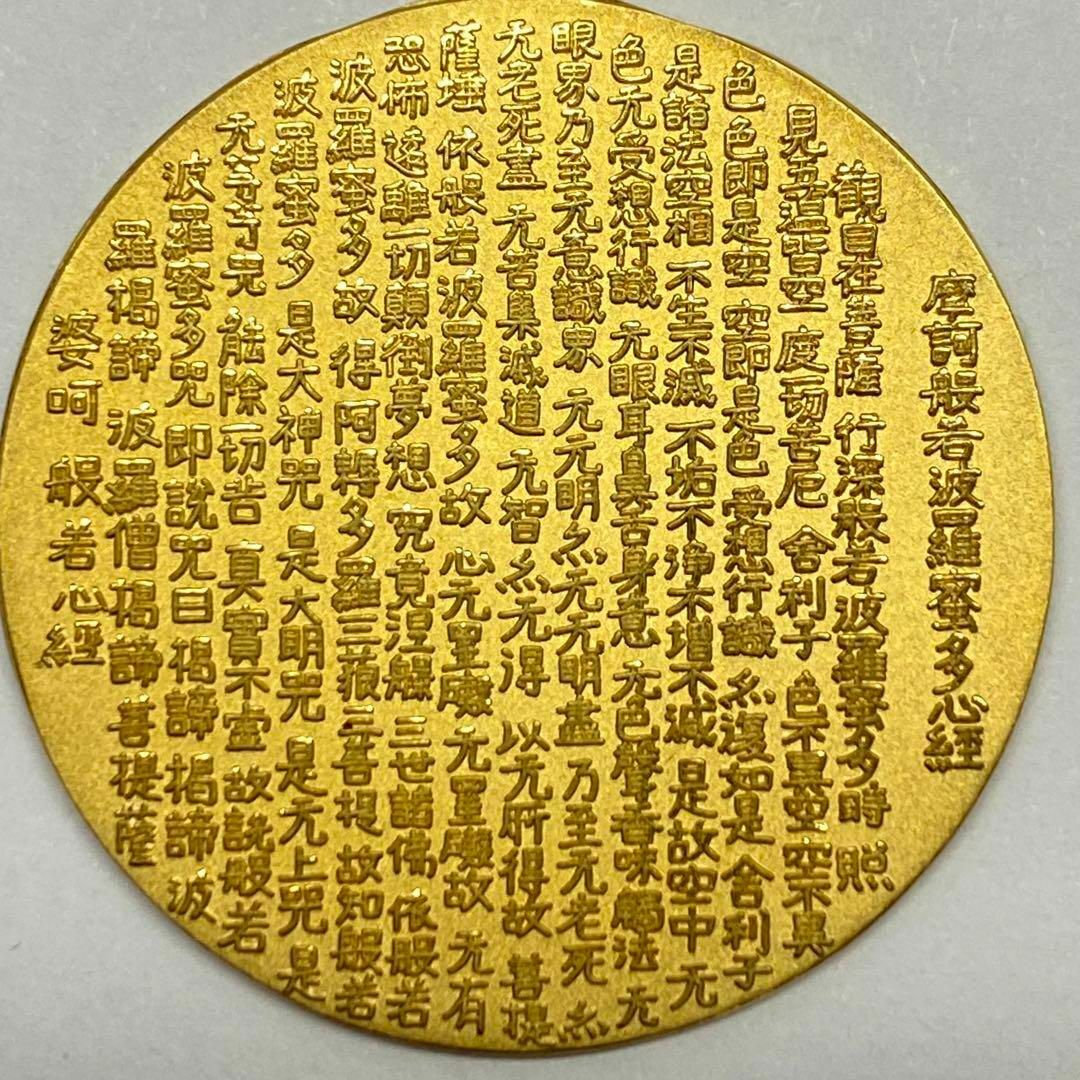 摩訶般若波羅蜜多心經
觀自在菩薩 行深般若波羅蜜多時 照
見五蘊皆空 度一切苦厄 舍利子 色不異空 空不異
色 色即是空 空即是色 受想行識 亦復如是 舍利子
是諸法空相 不生不滅 不垢不淨 不增不減 是故空中 无
色 无受想行識 无眼耳鼻舌身意 无色聲香味觸法 无
眼界 乃至无意識界 无无明 亦无无明盡 乃至无老死 亦
无老死盡 无苦集滅道 无智 亦无得 以无所得故 菩提
薩埵 依般若波羅蜜多故 心无罣礙 无罣礙故 无有
恐怖 遠離一切顛倒夢想 究竟涅槃 三世諸佛 依般若
波羅蜜多故 得阿耨多羅三藐三菩提 故知般若
波羅蜜多 是大神咒 是大明咒 是无上咒 是
无等等咒 能除一切苦 真實不虛 故說般若
波羅蜜多咒 即說咒曰 揭諦 揭諦 波
羅揭諦 波羅僧揭諦 菩提薩
婆呵 般若心經